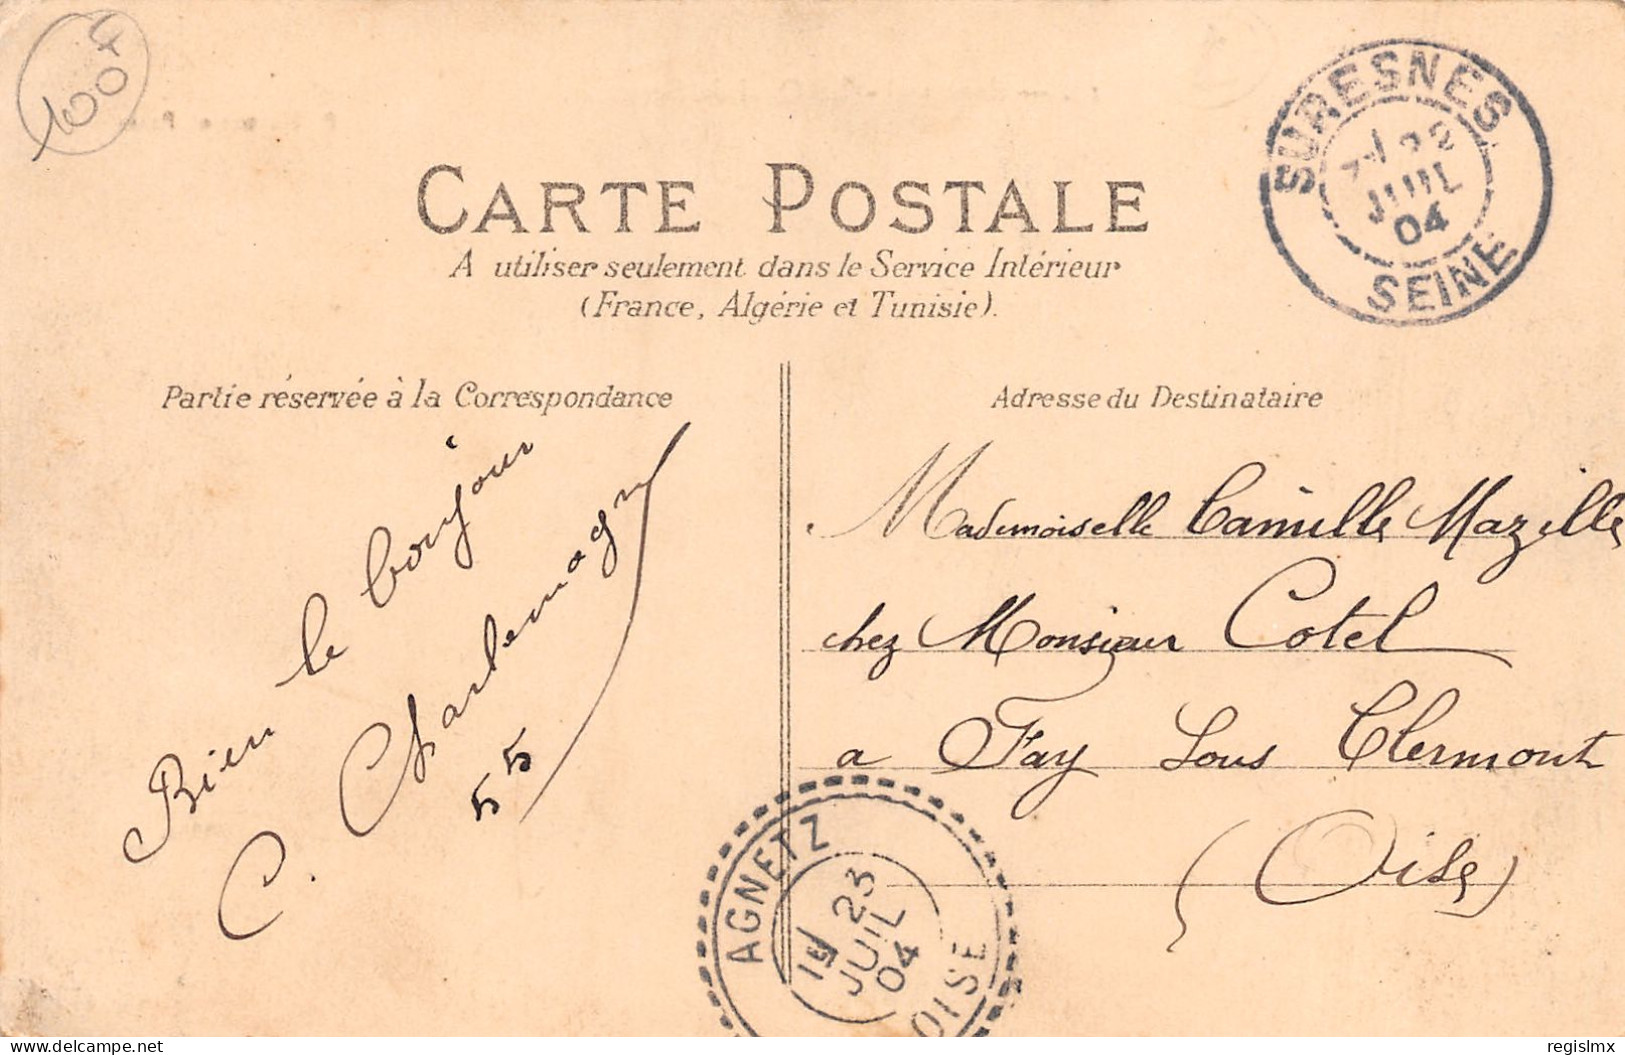 1004
CARTE POSTALE
A utiliser seulement dans le Service Intérieur
(France, Algérie et Tunisie).
SURESNES
22
JUIL
04
SEINE
Partie réservée à la Correspondance
Adresse du Destinataire
Bien le bonjour
C. Charlemagne
55
Mademoiselle Camille Mazille
chez Monsieur Cotel
a Fay Sous Clermont
(Oise)
AGNETZ
23
JUIL
04
OISE
delcampe.net
regislmx